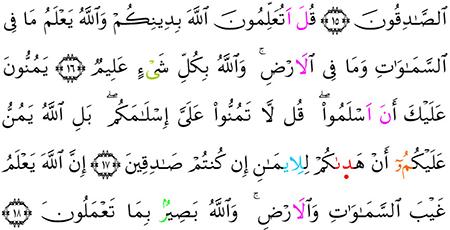 الصَّٰدِقُونَ ۝١٥ قُلَ اَتُعَلِّمُونَ اللَّهَ بِدِينِكُمْ وَاللَّهُ يَعْلَمُ مَا فِى
السَّمَٰوَٰتِ وَمَا فِى الَارْضِ ۚ وَاللَّهُ بِكُلِّ شَىْءٍ عَلِيمٌ ۝١٦ يَمُنُّونَ
عَلَيْكَ أَنَ اَسْلَمُوا۟ ۖ قُل لَّا تَمُنُّوا۟ عَلَىَّ إِسْلَٰمَكُم ۖ بَلِ اللَّهُ يَمُنُّ
عَلَيْكُمُۥٓ أَنْ هَدَىٰكُمْ لِلِايمَٰنِ إِن كُنتُمْ صَٰدِقِينَ ۝١٧ إِنَّ اللَّهَ يَعْلَمُ
غَيْبَ السَّمَٰوَٰتِ وَالَارْضِ ۚ وَاللَّهُ بَصِيرٌ بِمَا تَعْمَلُونَ ۝١٨